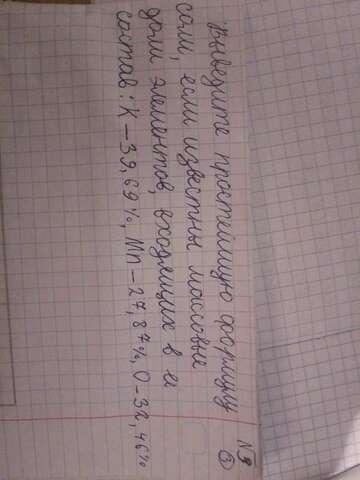 №3
③
Выведите простейшую формулу
соли, если известны массовые
доли элементов, входящих в её
состав: K – 39,69%, Mn – 27,87%, O – 32,46%